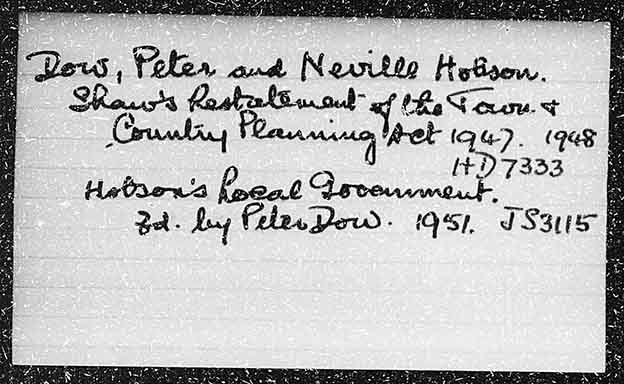 Dow, Peter and Neville Hobson.
Shaw's Restatement of the Town &
Country Planning Act 1947. 1948
HD7333
Hobson's Local Government.
Ed. by Peter Dow. 1951. JS3115